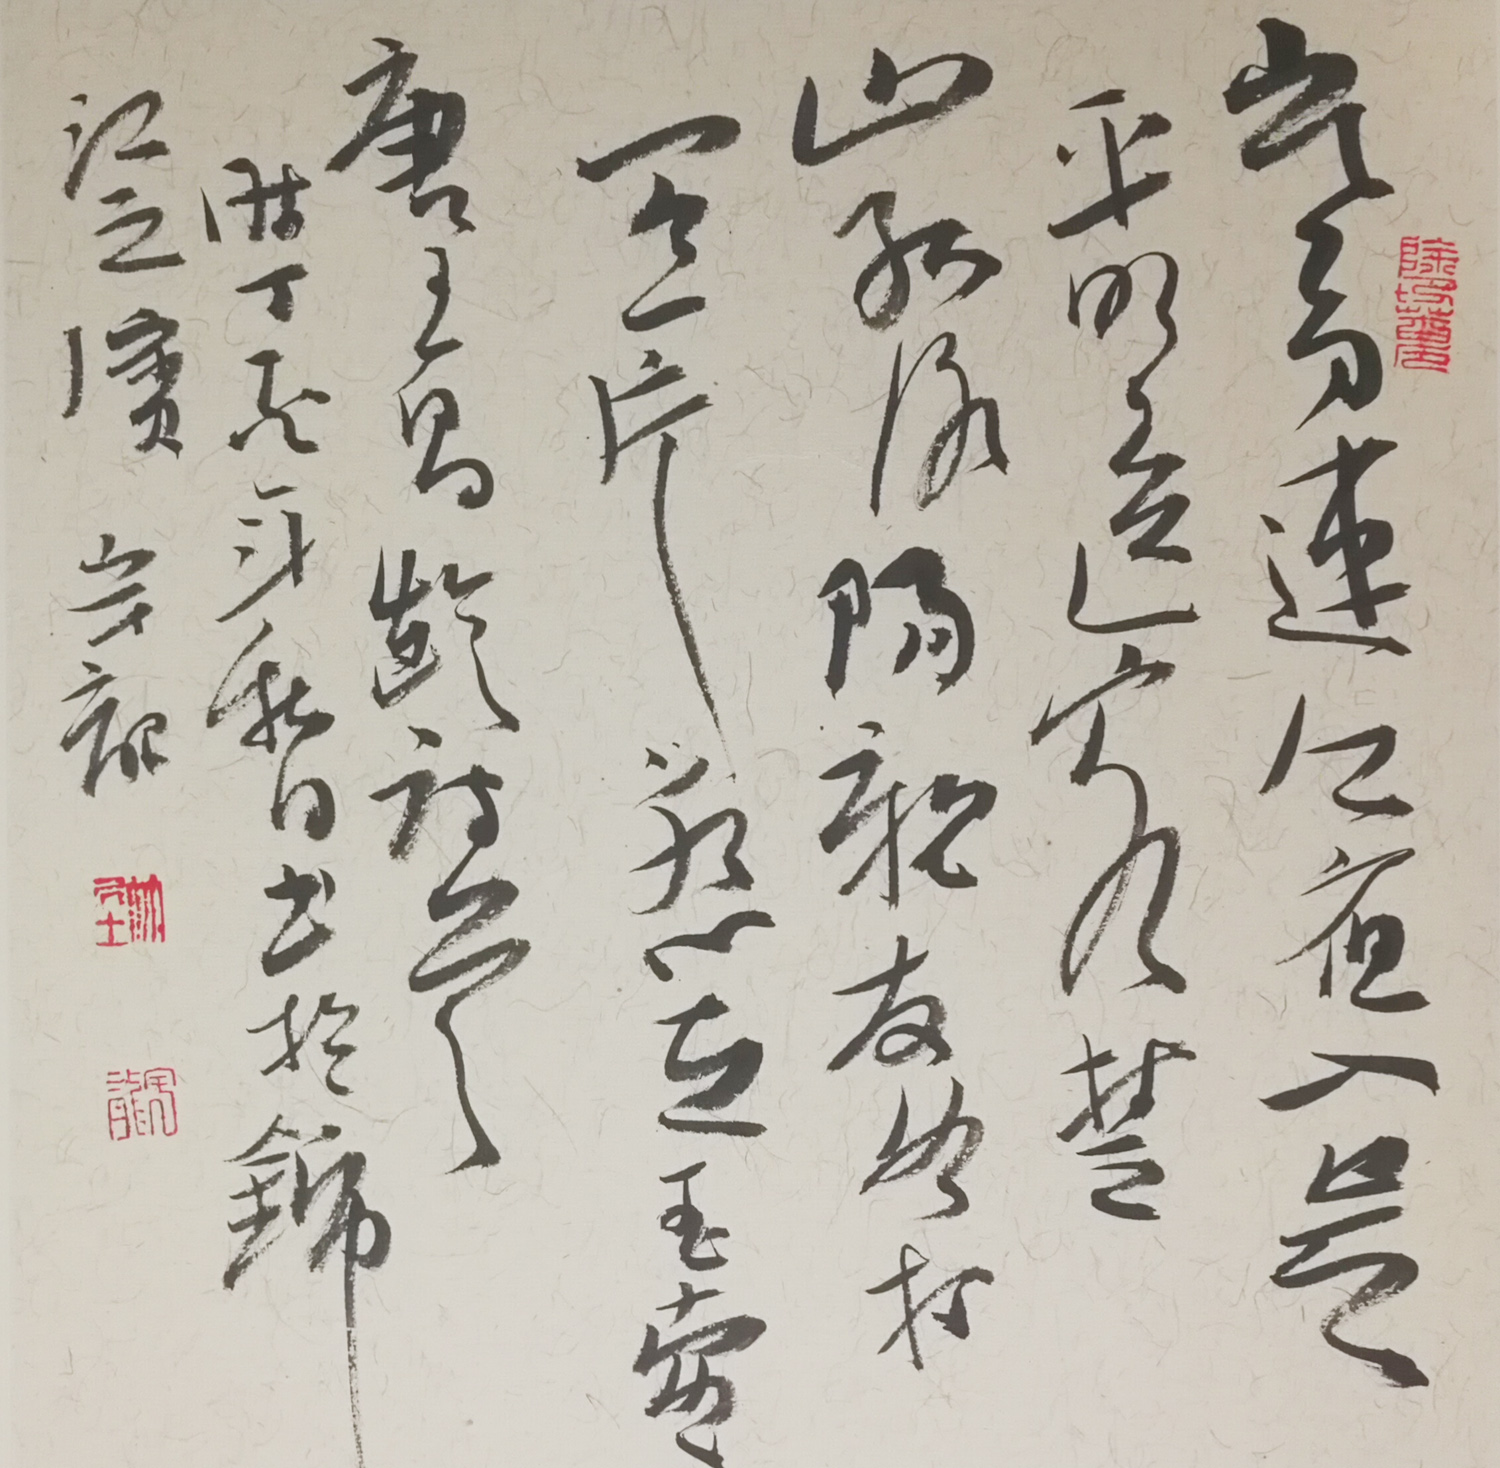 寒雨連江夜入吳
平明送客楚
山孤洛陽親友如相
問一片冰心在玉壺
唐王昌齡詩
丁酉年秋日书於錦
江之濱